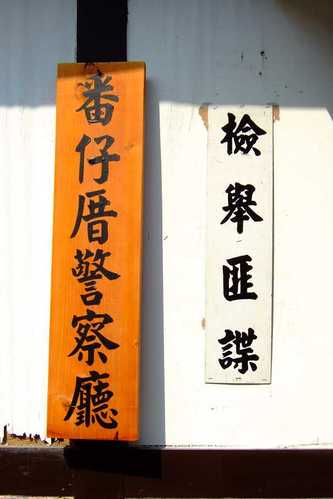 番仔厝警察廳
檢舉匪諜